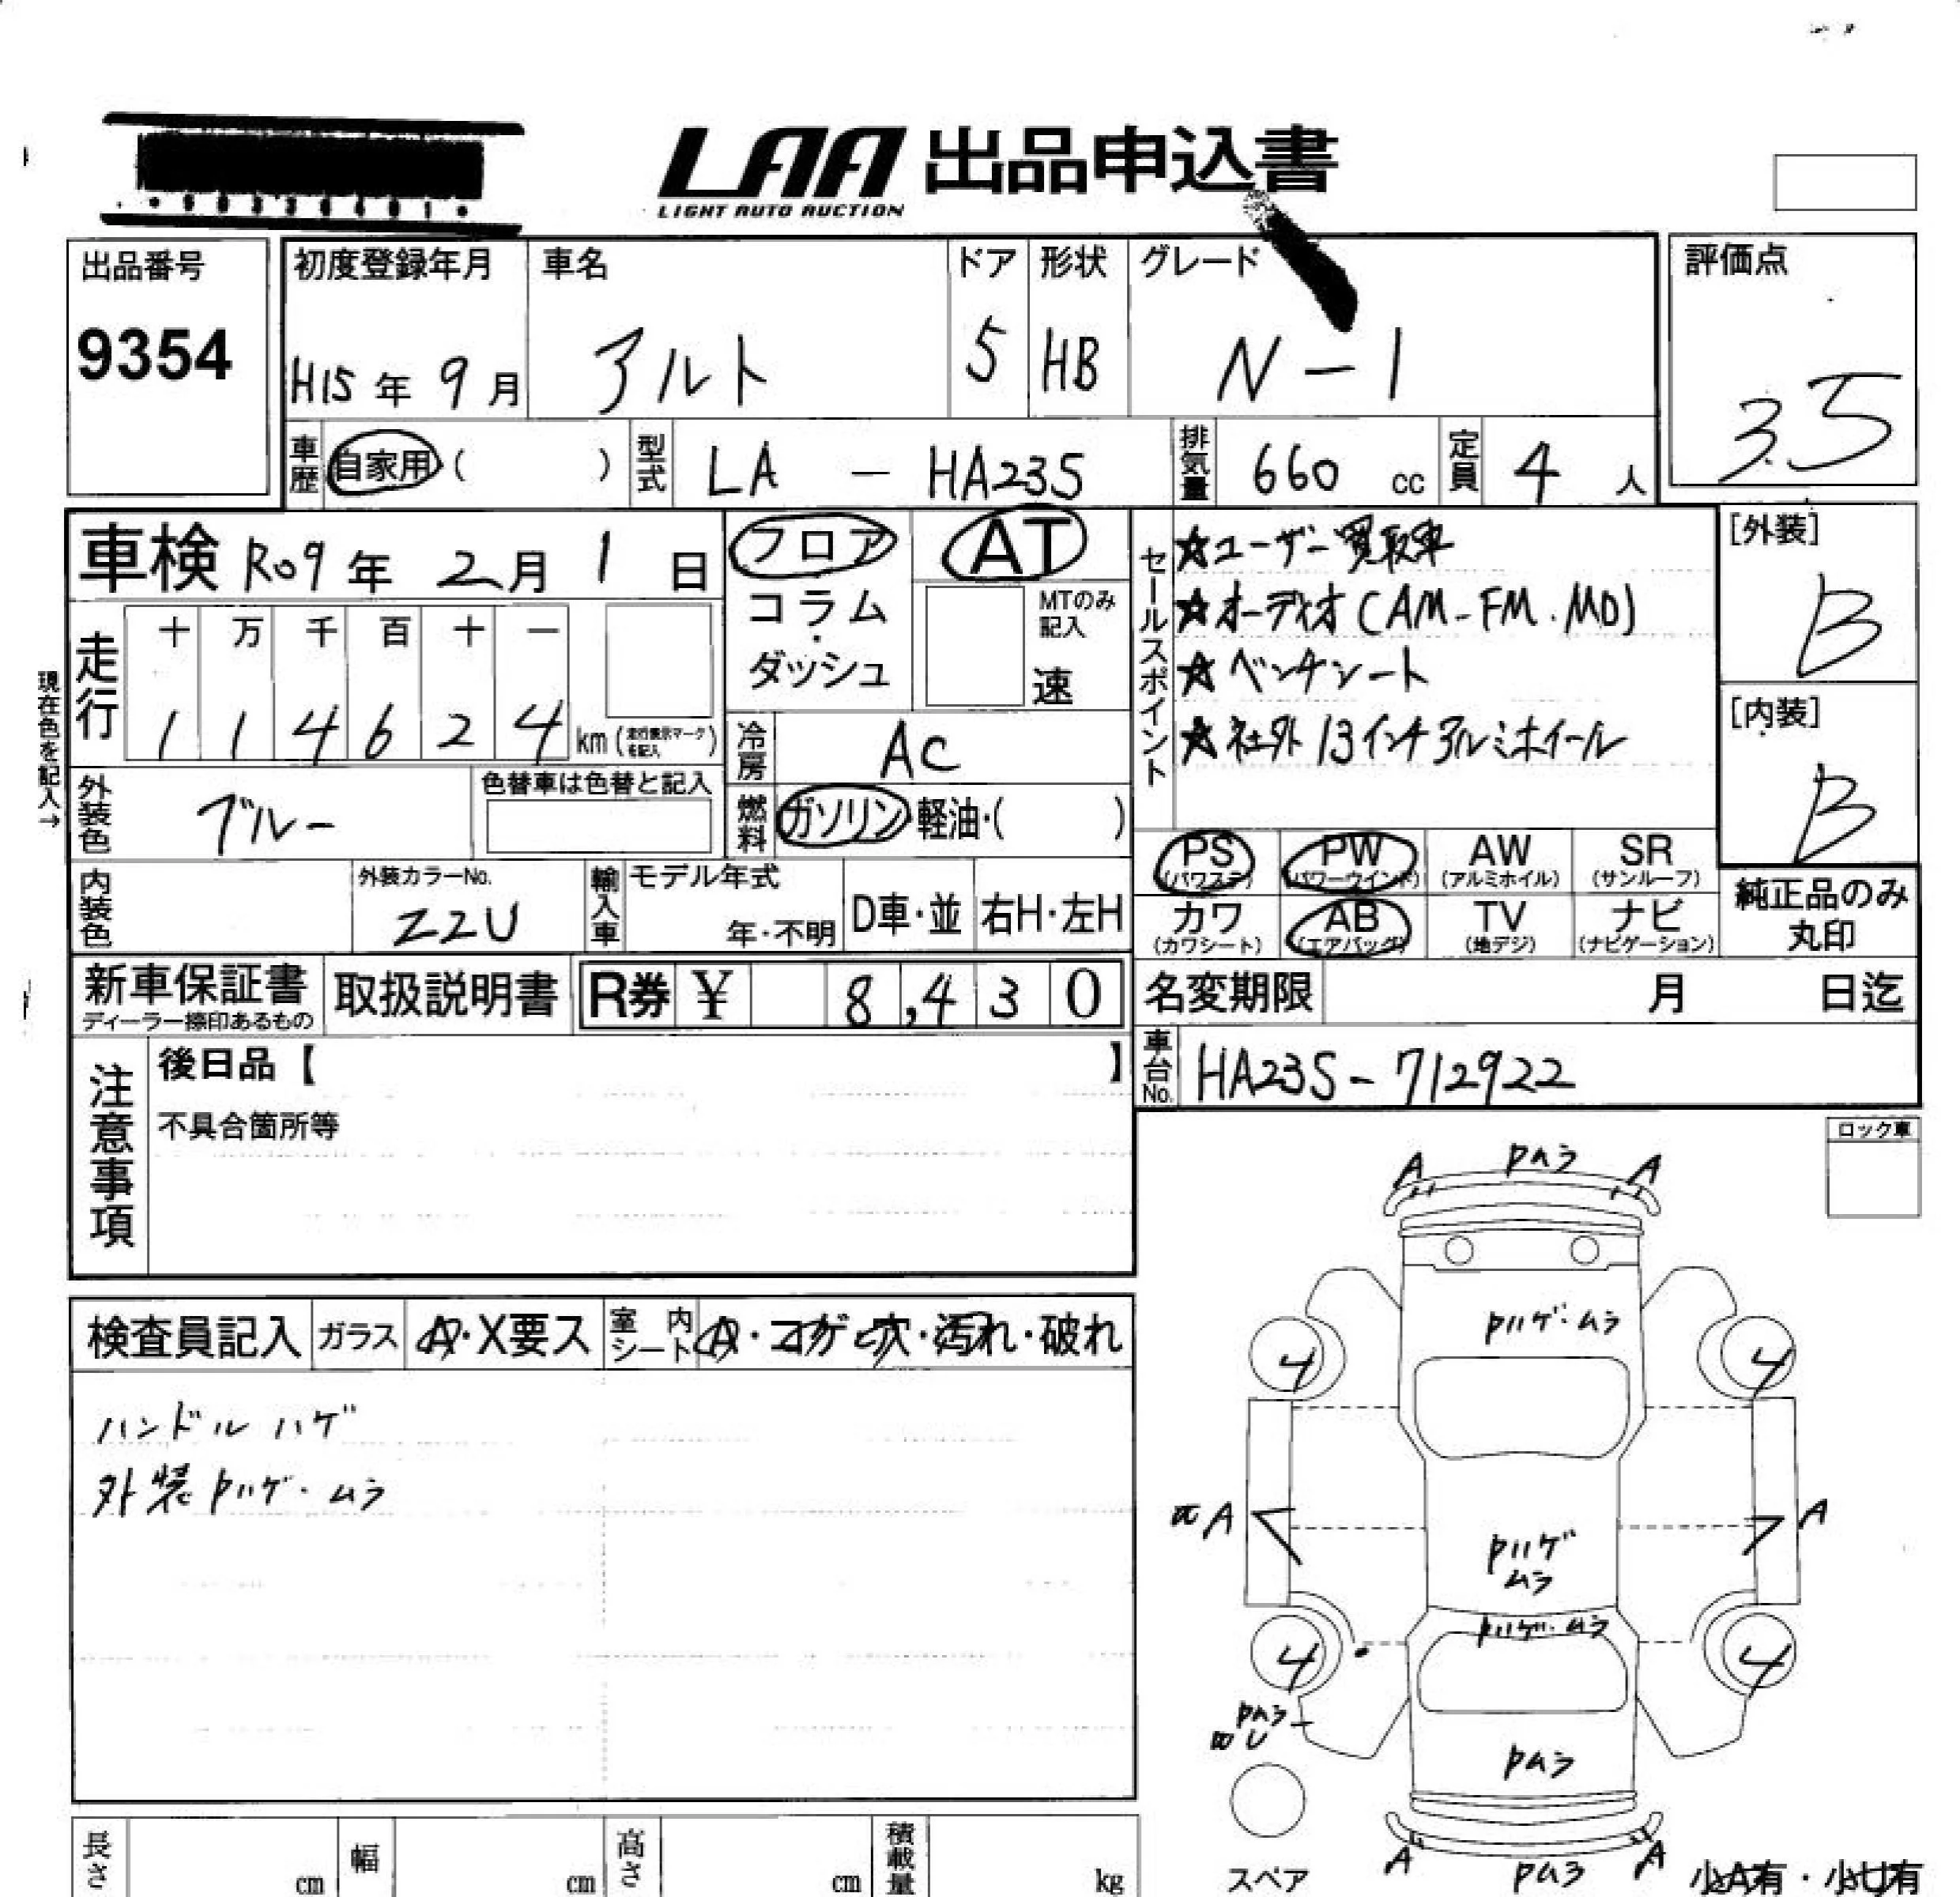 LAA 出品申込書
LIGHT AUTO AUCTION
出品番号
9354
初度登録年月
H15年9月
車名
アルト
ドア
5
形状
HB
グレード
N-1
評価点
3.5
車歴 自家用( )
型式 LA - HA23S
排気量 660 cc
定員 4 人
車検 R09年2月1日
フロア
コラム・ダッシュ
AT
MTのみ記入
速
セールスポイント
☆ユーザー買取車
☆オーディオ(AM-FM.MD)
☆ベンチシート
☆社外13インチアルミホイール
[外装]
B
[内装]
B
現在色を記入→
走行
十 万 千 百 十 一
1 1 4 6 2 4 km(走行表示マークを記入)
冷房 AC
外装色 ブルー
色替車は色替と記入
燃料 ガソリン 軽油・( )
内装色
外装カラーNo.
Z2U
輸入車
モデル年式
年・不明
D車・並
右H・左H
PS (パワステ)
PW (パワーウインド)
AW (アルミホイル)
SR (サンルーフ)
カワ (カワシート)
AB (エアバッグ)
TV (地デジ)
ナビ (ナビゲーション)
純正品のみ丸印
新車保証書
ディーラー捺印あるもの
取扱説明書
R券 ¥ 8,430
名変期限 月 日迄
車台No. HA23S-712922
注意事項
後日品【 】
不具合箇所等
ロック車
検査員記入
ガラス A・X要ス
室内シート A・コゲ・穴・汚れ・破れ
ハンドルハゲ
外装Pハゲ・ムラ
A Pムラ A
Pハゲ・ムラ
4 4
A A
Pハゲ
ムラ
Pハゲ・ムラ
4 4
Pムラ
U
Pムラ
A Pムラ A
スペア
小A有・小U有
長さ cm
幅 cm
高さ cm
積載量 kg